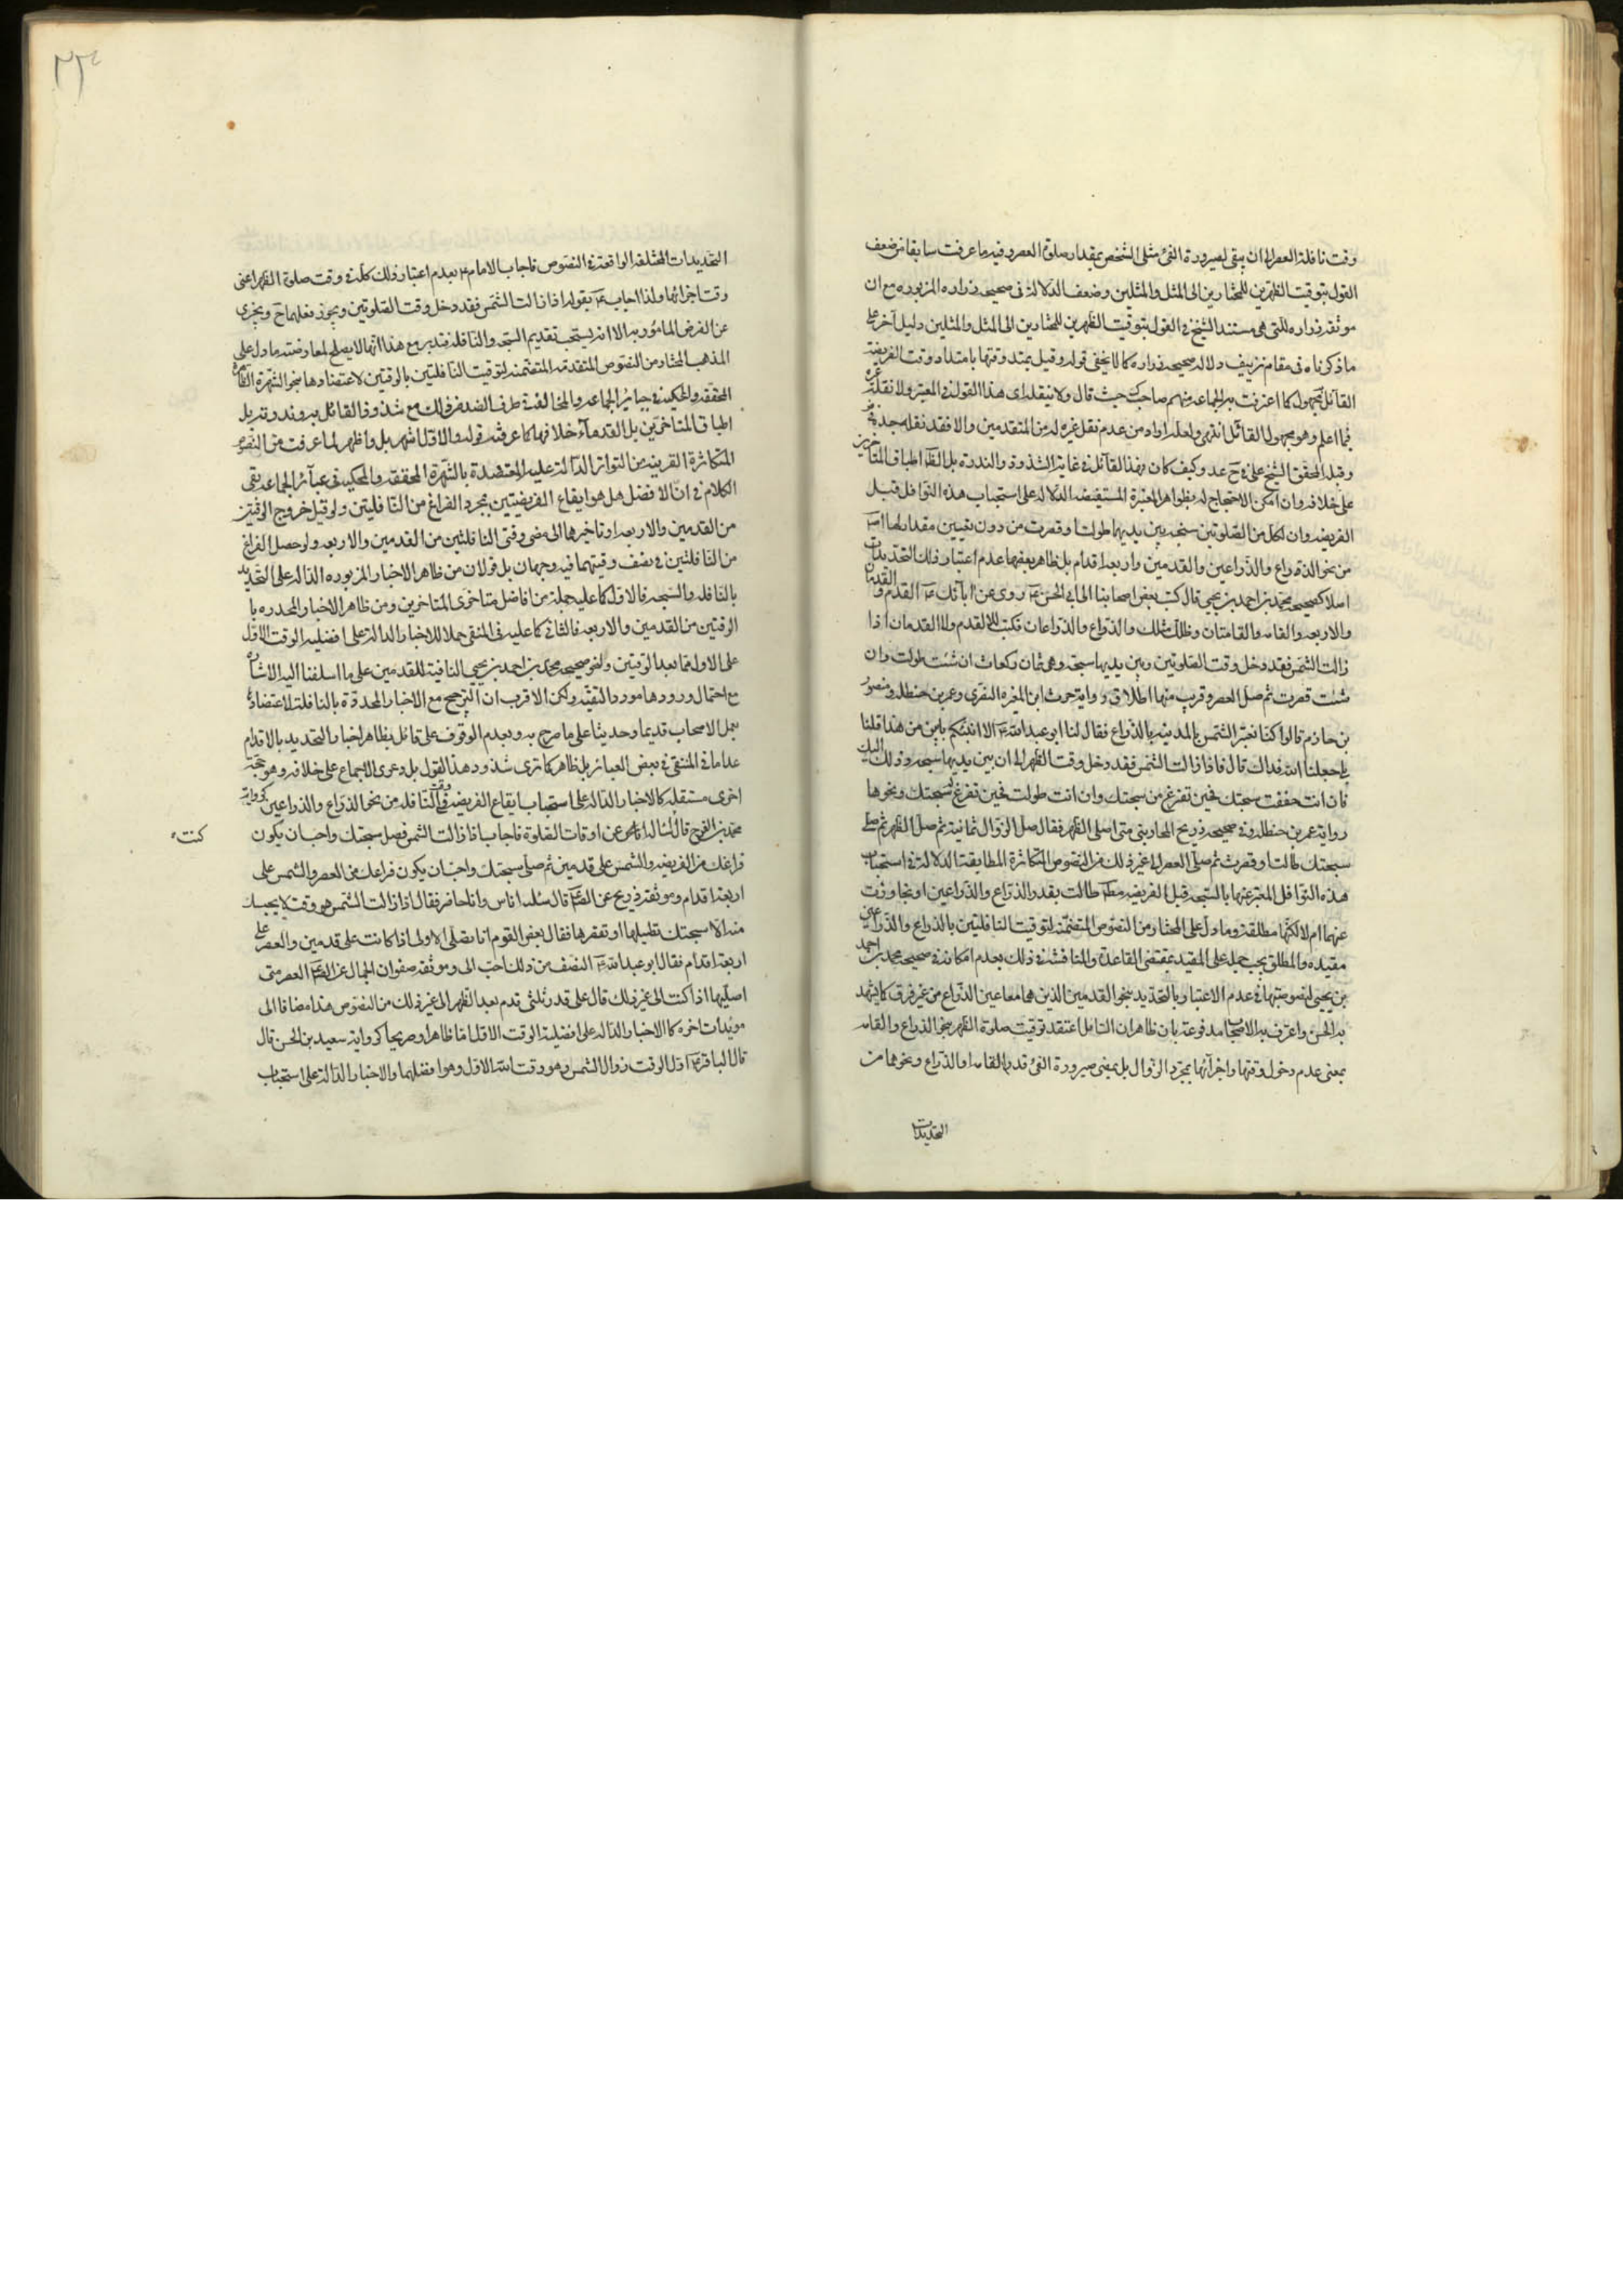 وقت نافلة العصر الى ان يبقى لصيرورة الفئ مثلى الشخص بمقدار صلوة العصر وفيه ما عرفت سابقا من ضعف
القول بتوقيت الظهرين للمختارين الى المثل والمثلين وضعف الدلالة فى صحيحه زراره المزبوره مع ان
موثقه زراره للتى هى مستند الشيخ فى القول بتوقيت الظهرين للمختارين الى المثل والمثلين دليل آخر على
ما ذكرناه فى مقام تزييف دلاله صحيحه زراره كما لا يخفى قوله وقيل يمتد وقتها بامتداد وقت الفريضة
القائل مجهول كما اعترفت به الجماعه منهم صاحب حيث قال ولا ينقل اى هذا القول فى المعتبر ولا نقله غيره
فيما اعلم وهو مجهول القائل انتهى ولعله اراد من عدم نقل غيره له من المتقدمين والا فقد نقله جده فى
وقبله المحقق الشيخ على فى وكيف كان فهذا القائل فى غاية الشذوذ والندرة بل اطباق المتاخرين
على خلافه وان امكن الاحتجاج له بظواهر المعتبرة المستفيضه الدلاله على استحباب هذه النوافل قبل
الفريضه وان لكل من الصلوتين سبحه بين يديها طولت او قصرت من دون تعيين مقدار لها
من نحو الذراع والذراعين والقدمين واربعة اقدام بل ظاهر بعضها عدم اعتبار ذلك التحديدات
اصلا كصحيحه محمد بن احمد بن يحيى قال كتب بعض اصحابنا الى ابى الحسن روى عن ابائك القدم والقدمان
والاربعه والقامه والقامتان وظل مثلك والذراع والذراعان فكتب لا القدم ولا القدمان اذا
زالت الشمس فقد دخل وقت الصلوتين وبين يديها سبحه وهى ثمان ركعات ان شئت طولت وان
شئت قصرت ثم صل العصر وقريب منها اطلاق رواية حرث ابن المغيره النضرى وعمر بن حنظله ومنصور
بن حازم قالوا كنا نعبر الشمس بالمدينه بالذراع فقال لنا ابو عبد الله الا انبئكم بابين من هذا قلنا
بلى جعلنا الله فداك قال فاذا زالت الشمس فقد دخل وقت الظهر الا ان بين يديها سبحه وذلك اليك
فان انت خففت سبحتك فحين تفرغ من سبحتك وان انت طولت فحين تفرغ سبحتك ونحوها
رواية عمر بن حنظله وفى صحيحه ذريح المحاربى متى اصلى الظهر فقال صل الزوال ثمانية ثم صل الظهر ثم صل
سبحتك طالت او قصرت ثم صلى العصر الى غير ذلك من النصوص المتكاثرة المطابقة الدلالة فى استحباب
هذه النوافل المعبر عنها بالسبحه قبل الفريضه طالت بقدر الذراع والذراعين او تجاوزت
عنهما ام لا لكنها مطلقة وما دل على المختار من النصوص المتضمنة لتوقيت النافلتين بالذراع والذراعين
مقيده والمطلق يجب حمله على المقيد بمقتضى القاعدة والمناقشة فى ذلك بعدم امكانه فى صحيحه محمد بن احمد
بن يحيى لنصوصيتها فى عدم الاعتبار بالتحديد بنحو القدمين الذين هما معا عين الذراع من غير فرق كما يشهد
به الحسن واعترف به الاصحاب مدفوعة بان ظاهر ان السائل اعتقد توقيت صلوة الظهر بنحو الذراع والقامه
بمعنى عدم دخول وقتها واجزآئها بمجرد الزوال بل بمضى صيرورة الفئ قدر القامه او الذراع ونحوهما من
التحديدات
التحديدات المختلفه الواقعة فى النصوص فاجاب الامام بعدم اعتبار ذلك كله فى وقت صلوة الظهر اعنى
وقت اجزائها ولذا اجاب بقوله اذا زالت الشمس فقد دخل وقت الصلوتين ويجوز فعلهما ويجزى
عن الفرض المامور به الا انه يستحب تقديم السبحه والنافله فتدبر مع هذا انها لا يصلح لمعارضته ما دل على
المذهب المختار من النصوص المتقدمه المتضمنه لتوقيت النافلتين بالوقتين لاعتضادها بنحو الشهرة الظاهرة
المحققه والمحكيه فى عبائر الجماعه والمخالفة فى طرف الضد من ذلك مع شذوذ القائل به وندوته بل
اطباق المتاخرين بل القدمآء خلافها كما عرفته قوله والاول اشهر بل واظهر لما عرفت من النصوص
المتكاثرة القريبه من التواتر الدالة عليه المعتضدة بالشهرة المحققه والمحكيه فى عبآئر الجماعه بقى
الكلام فى ان الافضل هل هو ايقاع الفريضتين بمجرد الفراغ من النافلتين ولو قبل خروج الوقتين
من القدمين والاربعه او تاخيرها الى مضى وقتى النافلتين من القدمين والاربعه ولو حصل الفراغ
من النافلتين فى نصف وقيتهما فيه وجهان بل قولان من ظاهر الاخبار المزبوره الداله على التحديد
بالنافله والسبحه فالاول كما عليه جملة من افاضل متاخرى المتاخرين ومن ظاهر الاخبار المحدده با
الوقتين من القدمين والاربعه فالثانى كما عليه فى المنقى حملا للاخبار الدالة على افضليه الوقت الاول
على الاول مما بعد الوقتين ولنحو صحيحه محمد بن احمد بن يحيى النافية للقدمين على ما اسلفنا اليه الاشاره
مع احتمال ورودها مورد التقيه ولكن الاقرب ان الترجيح مع الاخبار المحددة بالنافلة لاعتضاده
بعمل الاصحاب قديما وحديثا على ما صرح به وبعدم الوقوف على قائل بظاهر اخبار التحديد بالاقدام
عدا ما فى المنقى فى بعض العبائر بل ظاهر كما ترى شذوذ هذا القول بل دعوى الاجماع على خلافه وهو حجة
اخرى مستقله كالاخبار الداله على استحباب ايقاع الفريضه فى وقت النافله من نحو الذراع والذراعين كرواية
محمد بن الفرج قال اسئال عن اوقات الصلوة فاجاب اذا زالت الشمس فصل سبحتك واحب ان يكون
كتبت
فراغك من الفريضه والشمس على قدمين ثم صلى سبحتك واحب ان يكون فراغك من العصر والشمس على
اربعة اقدام وموثقه ذريح عن قال سئله اناس وانا حاضر فقال اذا زالت الشمس فهو وقت لا يحبسك
منه الا سبحتك تطيلها او تقصرها فقال بعض القوم انا نصلى الاولى اذا كانت على قدمين والعصر على
اربعة اقدام فقال ابو عبد الله النصف من ذلك احب الى وموثقه صفوان الجمال عن العصر متى
اصليها اذا كنت الى غير ذلك قال على قدر ثلثى قدم بعد الظهر الى غير ذلك من النصوص هذا مضافا الى
مويدات اخره كالاخبار الداله على افضلية الوقت الاول اما ظاهرا وصريحا كرواية سعيد بن الحسن قال
قال الباقر اول الوقت زوال الشمس وهو وقت الله الاول وهو افضلهما والاخبار الدالة على استحباب